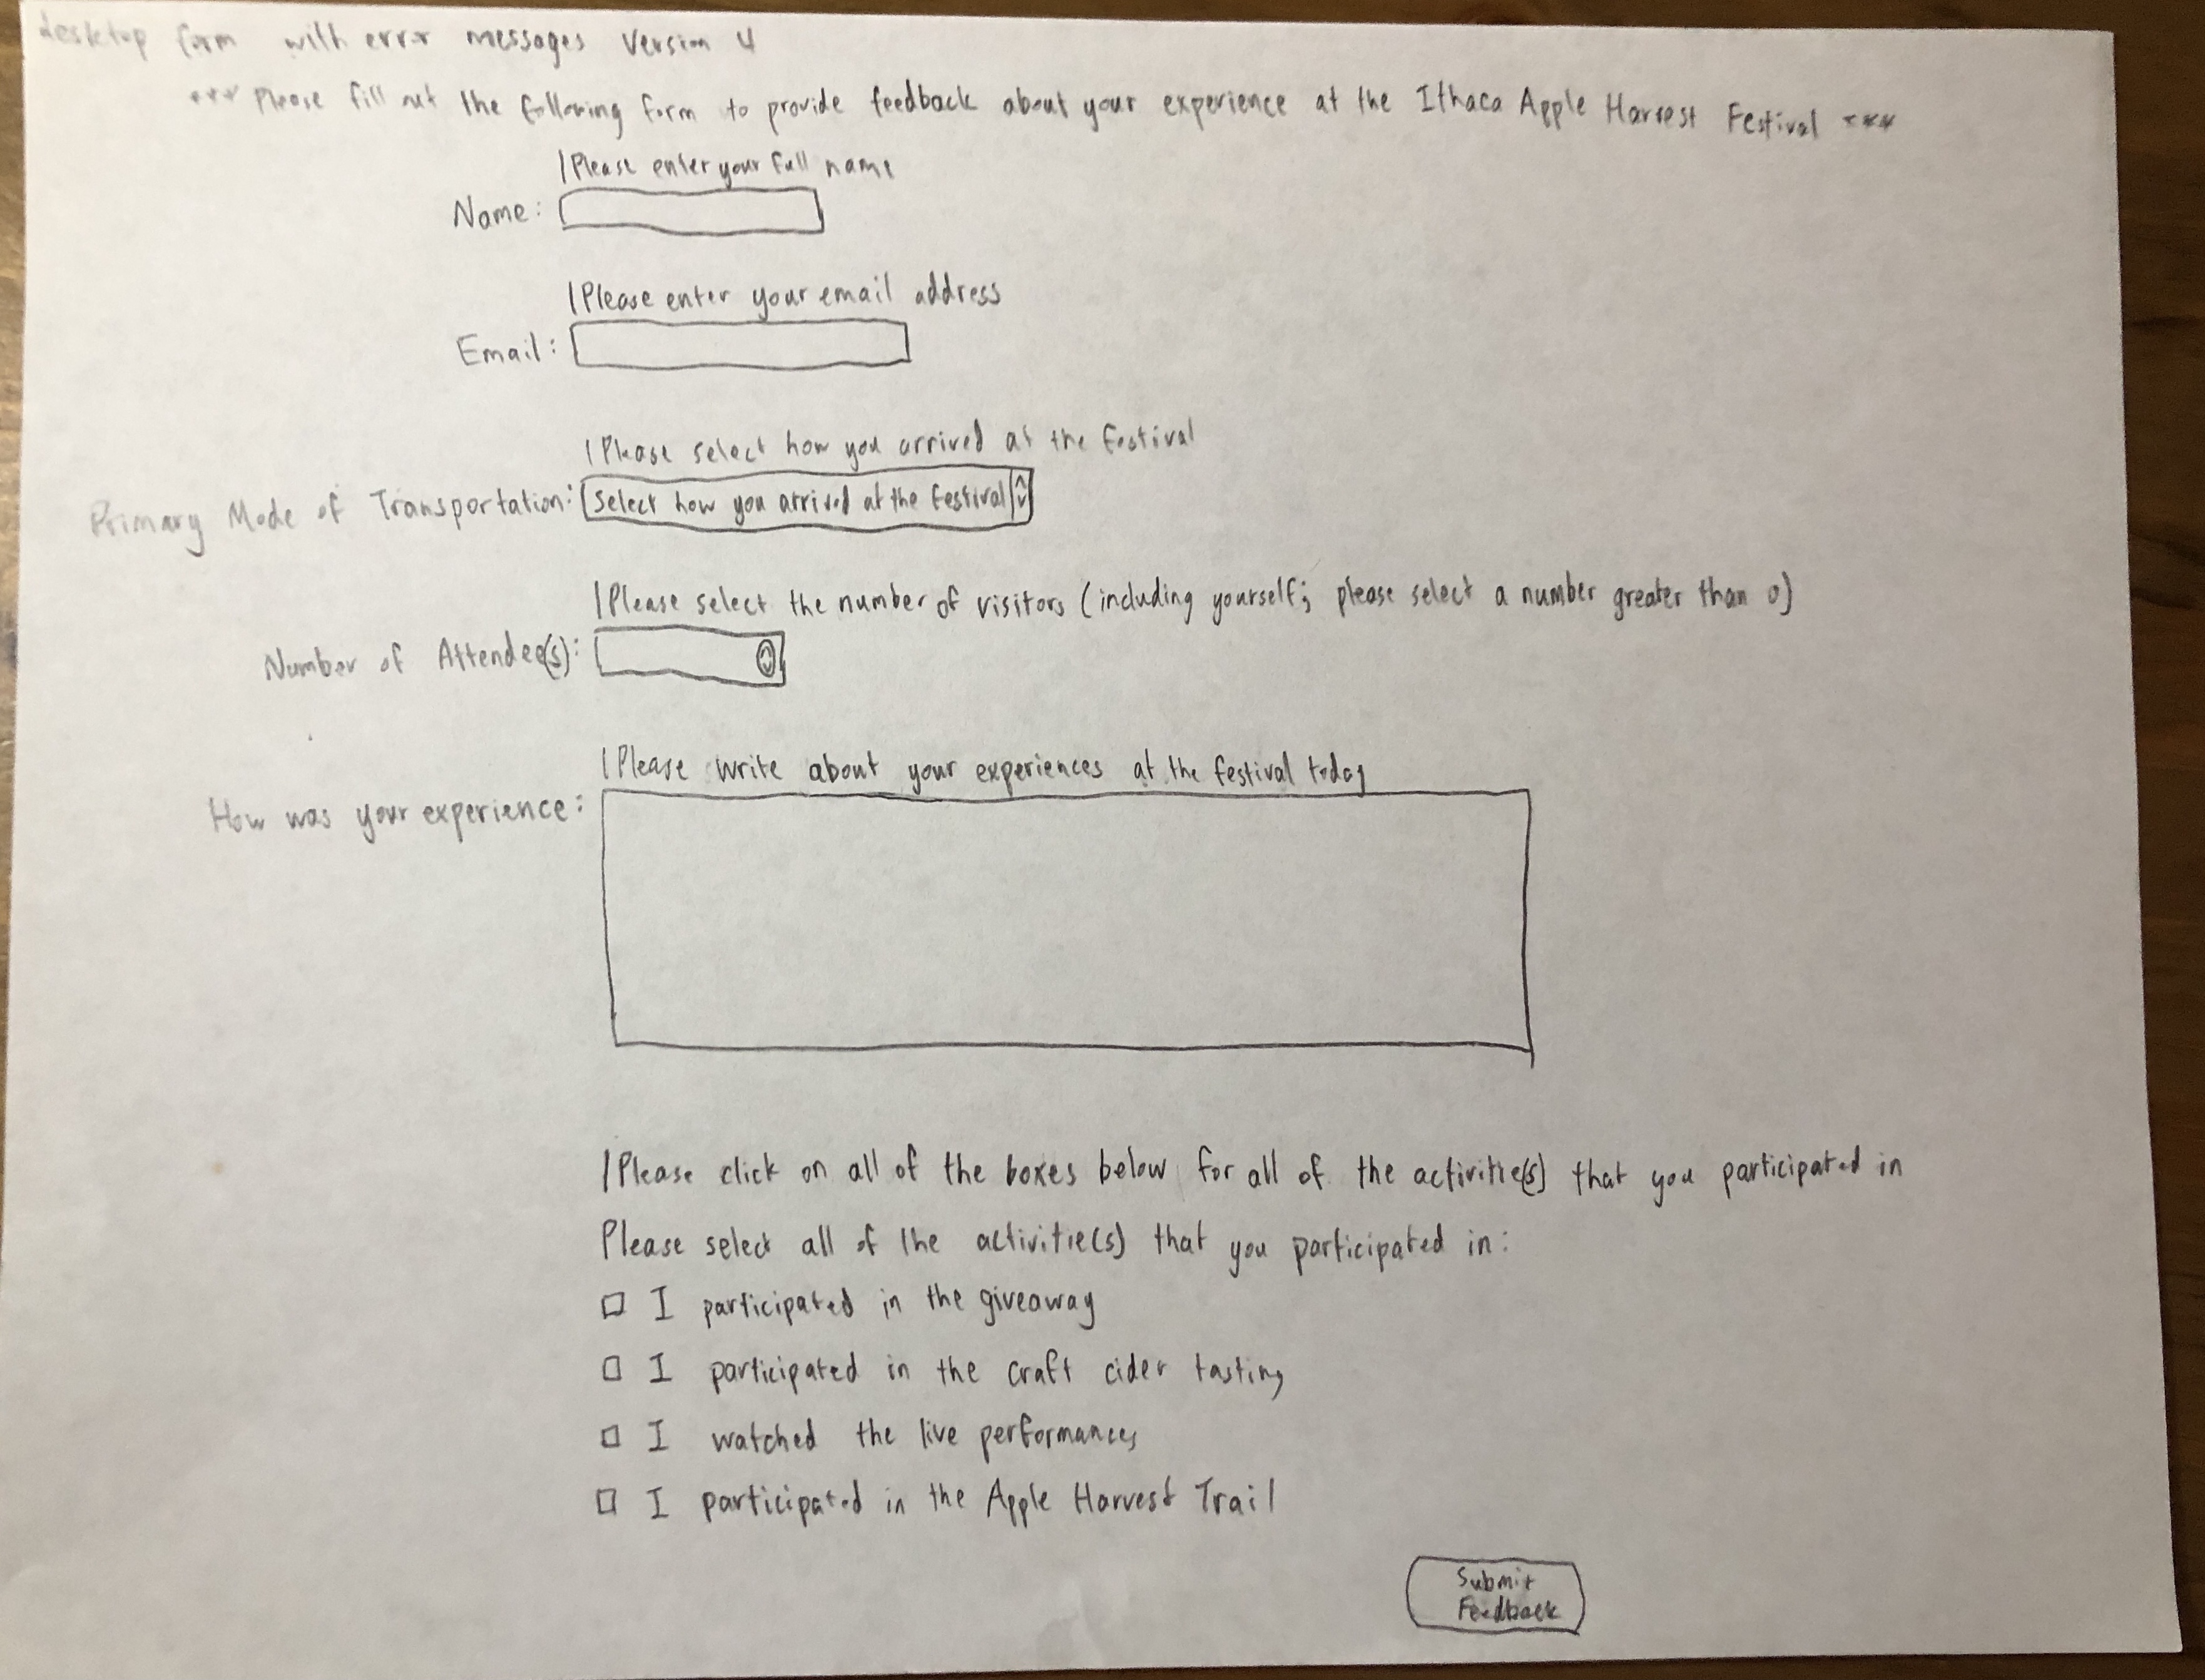 desktop form with error messages Version 4
*** Please fill out the following form to provide feedback about your experience at the Ithaca Apple Harvest Festival ***
|Please enter your full name
Name:
|Please enter your email address
Email:
|Please select how you arrived at the festival
Primary Mode of Transportation: Select how you arrived at the festival
|Please select the number of visitors (including yourself; please select a number greater than 0)
Number of Attendee(s):
|Please write about your experiences at the festival today
How was your experience:
|Please click on all of the boxes below for all of the activitie(s) that you participated in
Please select all of the activitie(s) that you participated in:
I participated in the giveaway
I participated in the craft cider tasting
I watched the live performances
I participated in the Apple Harvest Trail
Submit
Feedback